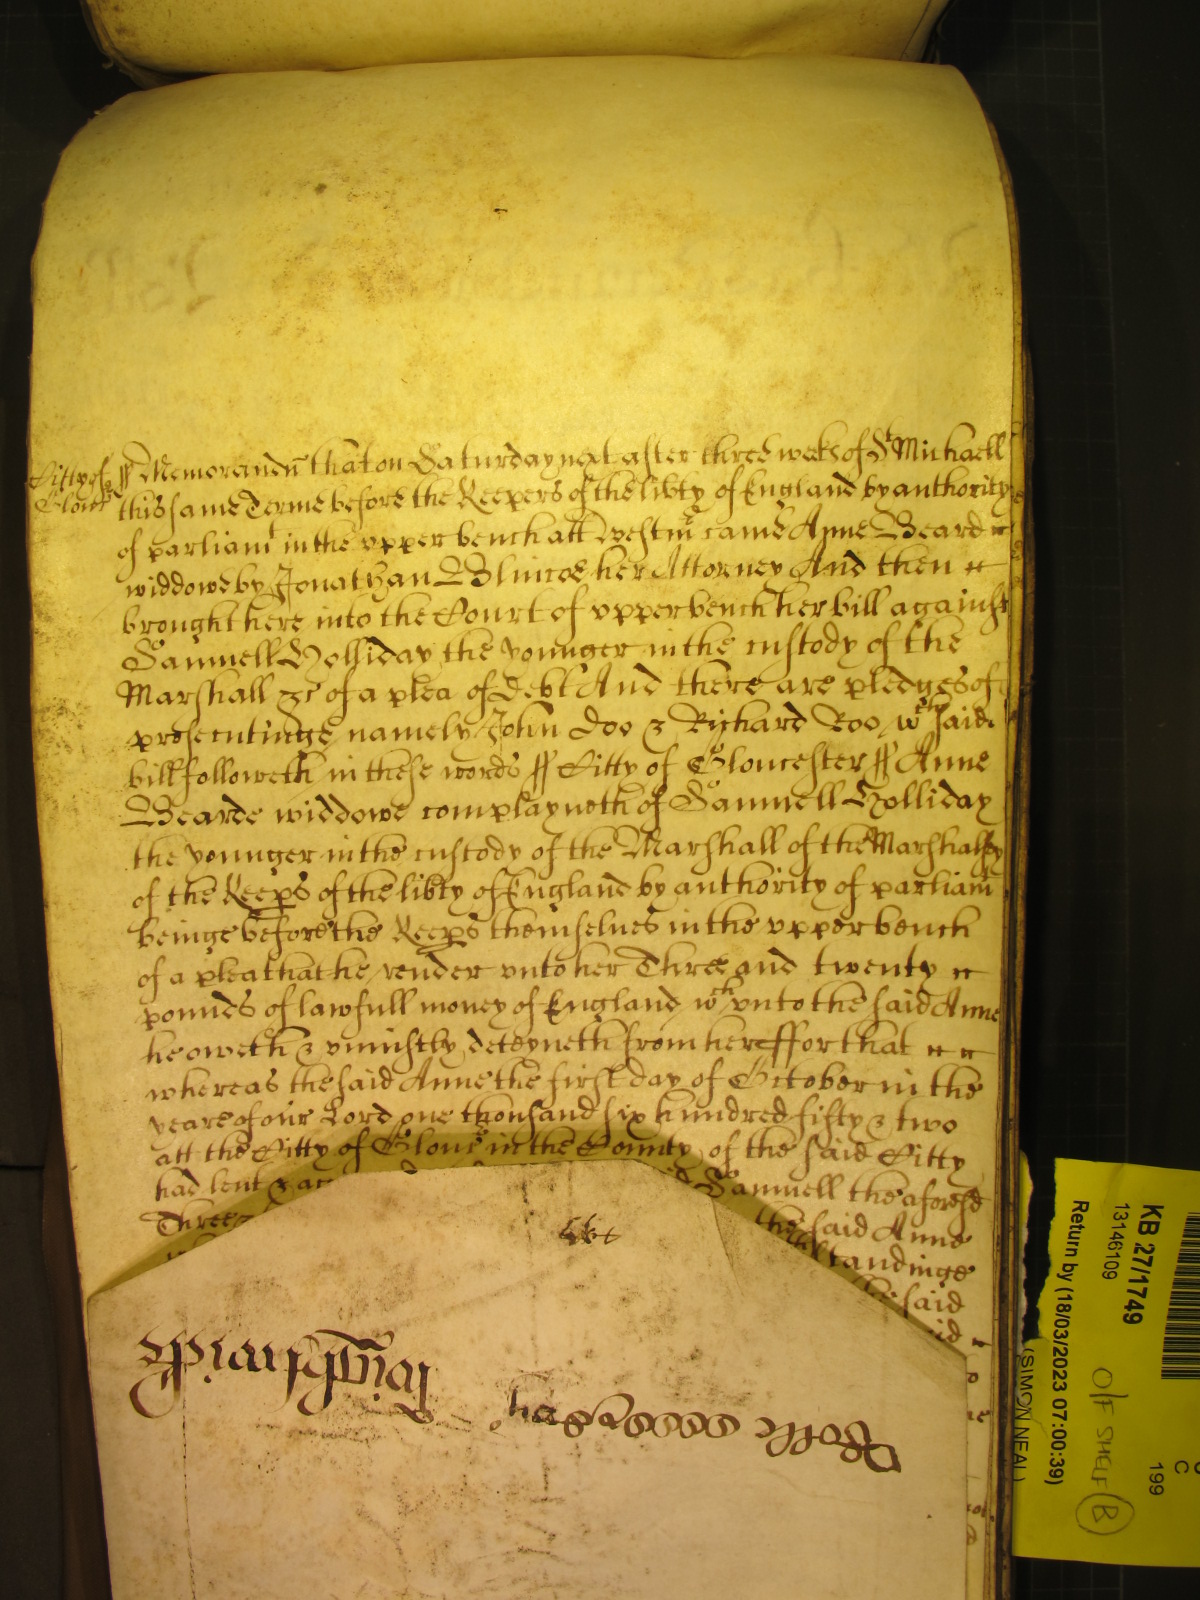 Citty of Glouc̃
ss Memorandu̅ that on Saturday next after three weeks of St Michaell
this same Terme before the Keepers of the lib̃ty of England by authority
of parliamt in the vpper bench att Westmr̃ came Anne Beard
widdowe by Jonathan Blincoe her Attorney And then
brought here into the Court of vpper bench her bill against
Samuell Holliday the younger in the custody of the
Marshall &c of a plea of debt And there are pledges of
prosecutinge namely John Doo & Richard Roo wch said
bill followeth in these words ss Citty of Gloucester ss Anne
Bearde widdowe complayneth of Samuell Holliday
the younger in the custody of the Marshall of the Marshalsy
of the Keeps of the lib̃ty of England by authority of parliam̃
beinge before the Keeps themselues in the vpper bench
of a plea that he render vnto her Three and twenty
pounds of lawfull money of England wch vnto the said Anne
he oweth & vniustly deteyneth from her ffor that
whereas the said Anne the first day of October in the
yeare of our Lord one thousand six hundred fifty & two
att the Citty of Glouc̃ in the County of the said Citty
had lent & Samuell the aforesd
Three & the said Anne
standinge
said
KB 27/1749
13146109
Return by (18/03/2023 07:00:39)
(SIMON NEAL)
O/F SHELF B
C
199